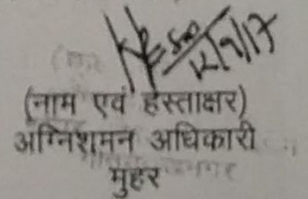 12/9/17
(नाम एवं हस्ताक्षर)
अग्निशमन अधिकारी
मुहर